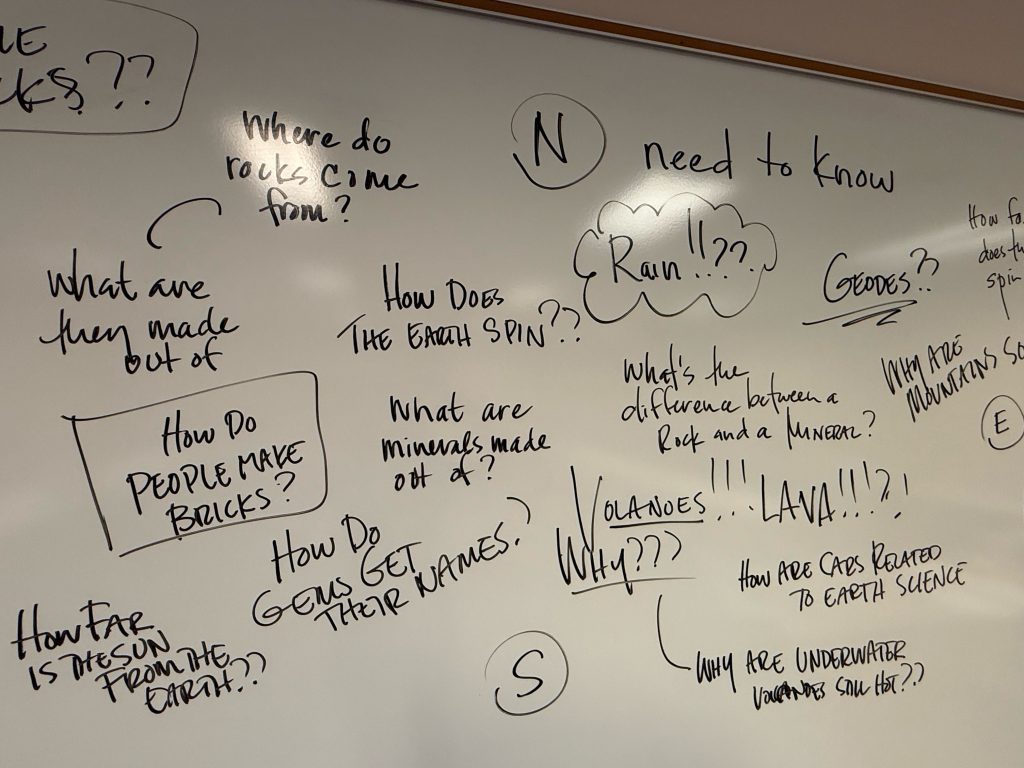 Where do
rocks come
from?
What are
they made
out of
N
need to know
Rain!!??
GEODES??
HOW DOES
THE EARTH SPIN??
How
spin
What's the
difference between a
ROCK and a MINERAL?
WHY ARE
MOUNTAINS
E
HOW DO
PEOPLE MAKE
BRICKS?
What are
minerals made
out of?
VOLANOES!!! LAVA!!!?!
WHY???
HOW DO
GEMS GET
THEIR NAMES?
HOW ARE CARS RELATED
TO EARTH SCIENCE
HOW FAR
IS THE SUN
FROM THE
EARTH??
S
WHY ARE UNDERWATER
VOLCANOES STILL HOT??